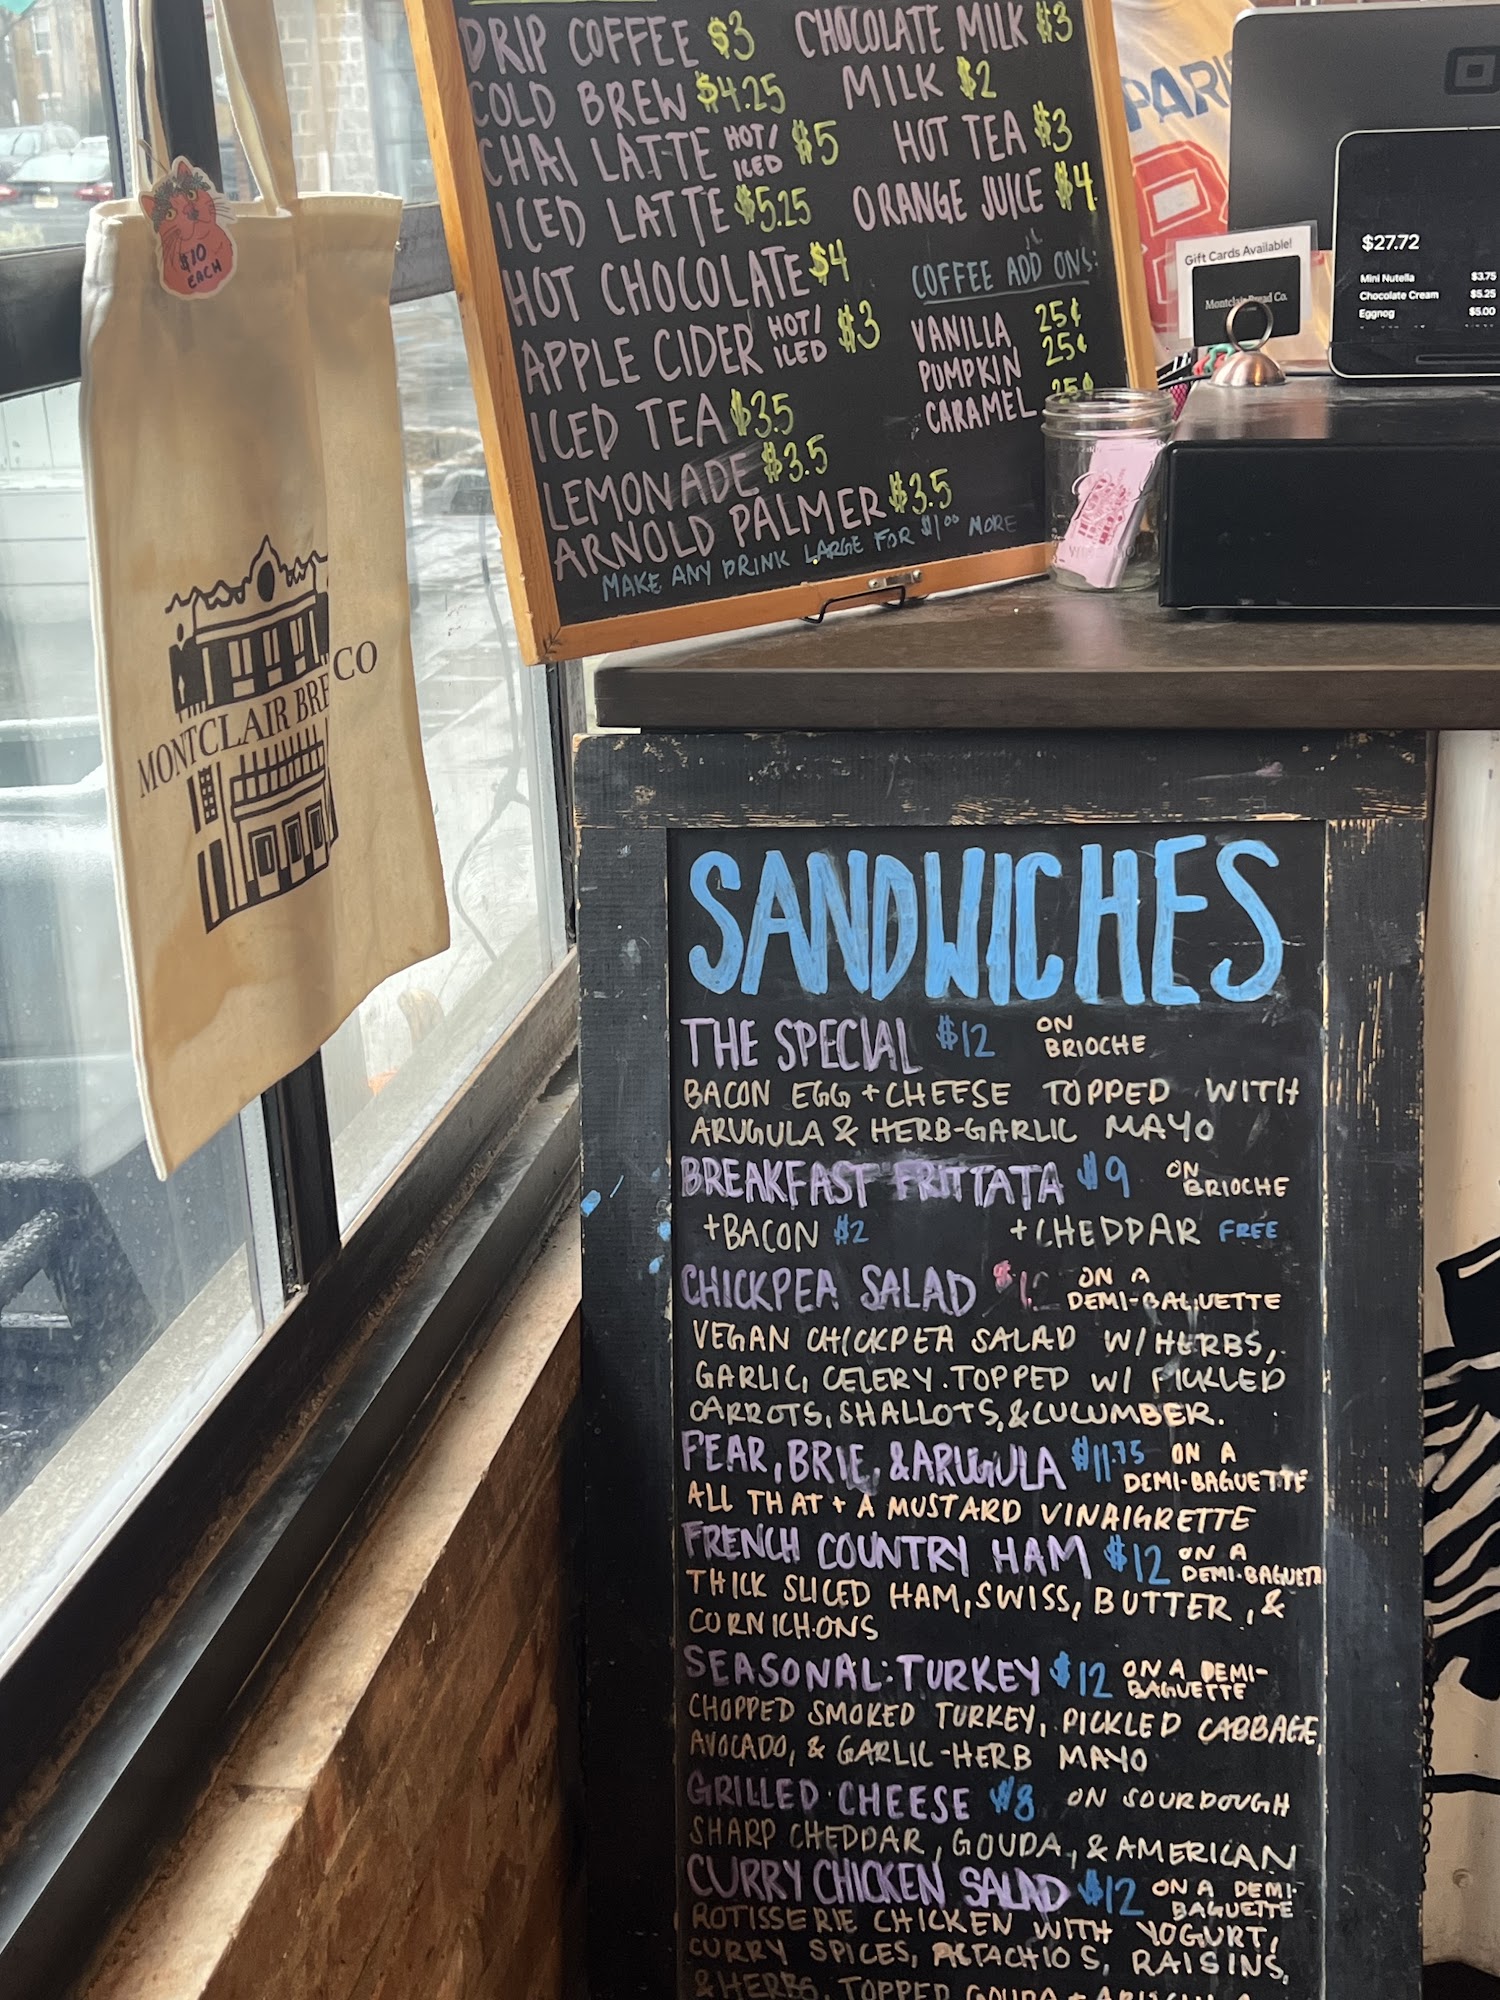 DRIP COFFEE $3
COLD BREW $4.25
CHAI LATTE HOT/ ICED $5
ICED LATTE $5.25
HOT CHOCOLATE $4
APPLE CIDER HOT/ ICED $3
ICED TEA $3.5
LEMONADE $3.5
ARNOLD PALMER $3.5
MAKE ANY DRINK LARGE FOR $1.00 MORE
CHOCOLATE MILK $3
MILK $2
HOT TEA $3
ORANGE JUICE $4
COFFEE ADD ONS:
VANILLA 25¢
PUMPKIN 25¢
CARAMEL 25¢
PARIS
Gift Cards Available!
Montclair Bread Co.
$27.72
Mini Nutella $3.75
Chocolate Cream $5.25
Eggnog $5.00
$10
EACH
MONTCLAIR BRE CO
SANDWICHES
THE SPECIAL $12 ON BRIOCHE
BACON EGG + CHEESE TOPPED WITH
ARUGULA & HERB-GARLIC MAYO
BREAKFAST FRITTATA $9 ON BRIOCHE
+BACON $2 +CHEDDAR FREE
CHICKPEA SALAD ON A DEMI-BAGUETTE
VEGAN CHICKPEA SALAD W/ HERBS,
GARLIC, CELERY. TOPPED W/ PICKLED
CARROTS, SHALLOTS, & CUCUMBER.
PEAR, BRIE, & ARUGULA $11.75 ON A DEMI-BAGUETTE
ALL THAT + A MUSTARD VINAIGRETTE
FRENCH COUNTRY HAM $12 ON A DEMI-BAGUETTE
THICK SLICED HAM, SWISS, BUTTER, &
CORNICHONS
SEASONAL: TURKEY $12 ON A DEMI-BAGUETTE
CHOPPED SMOKED TURKEY, PICKLED CABBAGE,
AVOCADO, & GARLIC-HERB MAYO
GRILLED CHEESE $8 ON SOURDOUGH
SHARP CHEDDAR, GOUDA, & AMERICAN
CURRY CHICKEN SALAD $12 ON A DEMI-BAGUETTE
ROTISSERIE CHICKEN WITH YOGURT,
CURRY SPICES, PISTACHIOS, RAISINS,
& HERBS. TOPPED GOUDA +